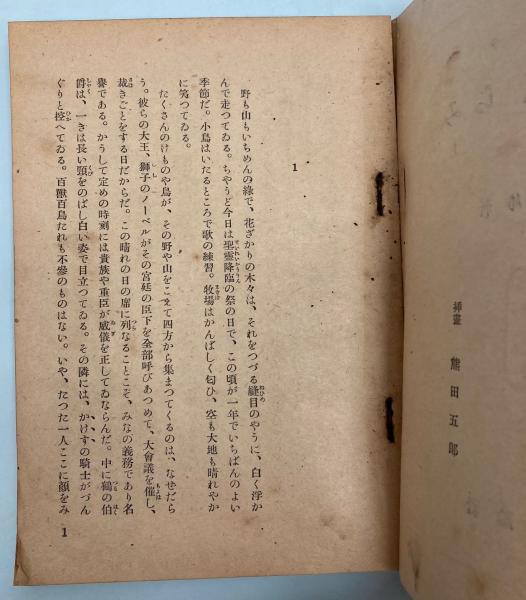 挿畫 熊田五郎
1
野も山もいちめんの綠で、花ざかりの木々は、それをつづる縫目のやうに、白く浮か
んで走つてゐる。ちやうど今日は聖靈降臨の祭の日で、この頃が一年でいちばんのよい
季節だ。小鳥はいたるところで歌の練習。牧場はかんばしく匂ひ、空も大地も晴れやか
に笑つてゐる。
たくさんのけものや鳥が、その野や山をこえて四方から集まつてくるのは、なぜだら
う。彼らの大王、獅子のノーベルがその宮廷の臣下を全部呼びあつめて、大會議を催し、
裁きごとをする日だからだ。この晴れの日の席に列なることこそ、みなの義務であり名
譽である。かうして定めの時刻には貴族や重臣が威儀を正してゐならんだ。中に鶴の伯
爵は、一きは長い頸をのばし白い姿で目立つてゐる。その隣には、かけすの騎士がづん
ぐりと控へてゐる。百獸百鳥たれも不參のものはない。いや、たつた一人ここに顏をみ
1